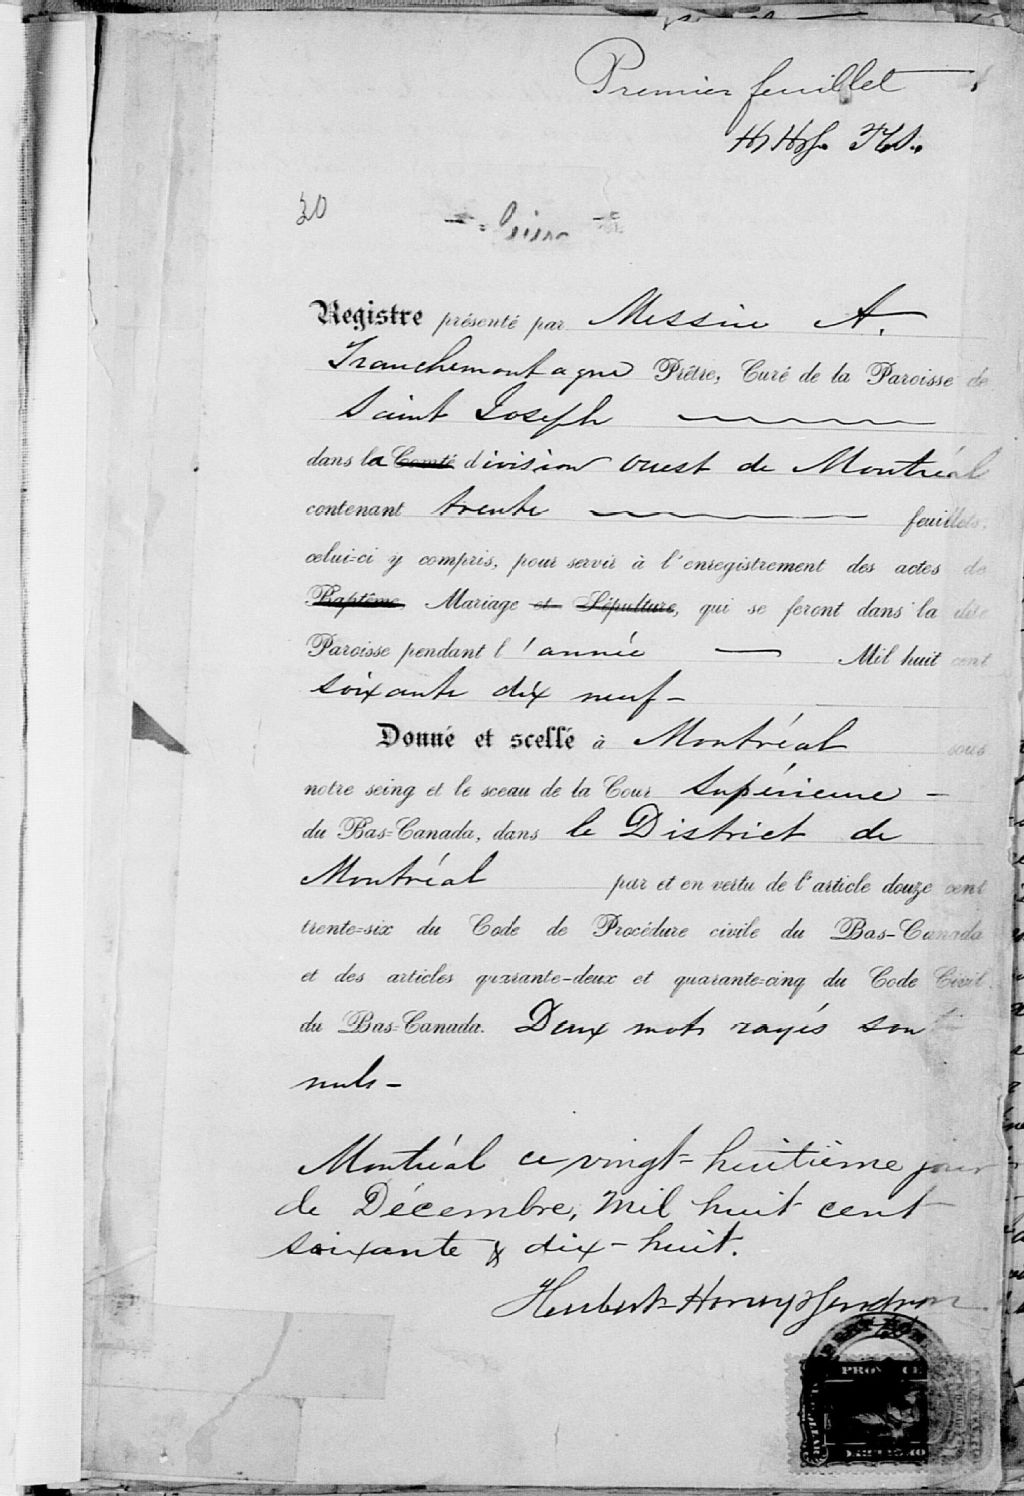 Premier feuillet
30
Registre présenté par Messire A.
Tranchemontagne Prêtre, Curé de la Paroisse de
Saint Joseph
dans la Comté division ouest de Montréal
contenant trente feuillets,
celui-ci y compris, pour servir à l'enregistrement des actes de
Baptême Mariage et Sépulture, qui se feront dans la dite
Paroisse pendant l'année — Mil huit cent
soixante dix neuf -
Donné et scellé à Montréal sous
notre seing et le sceau de la Cour Supérieure -
du Bas-Canada, dans le District de
Montréal par et en vertu de l'article douze cent
trente-six du Code de Procédure civile du Bas-Canada
et des articles quarante-deux et quarante-cinq du Code Civil
du Bas-Canada. Deux mots rayés son
nuls -
Montréal ce vingt-huitième jour
de Décembre, mil huit cent
soixante & dix-huit.
Hubert Honey